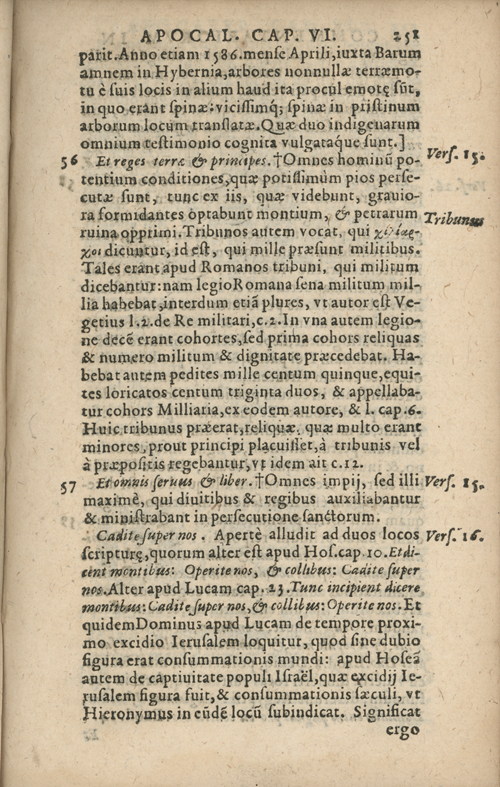 APOCAL. CAP. VI. 251
parit. Anno etiam 1586. mense Aprili, iuxta Barum
amnem in Hybernia, arbores nonnullæ terræmo-
tu è suis locis in alium haud ita procul emotę sũt,
in quo erant spinæ: vicissimq; spinæ in pristinum
arborum locum translatæ. Quæ duo indigenarum
omnium testimonio cognita vulgataque sunt.]
56 Et reges terræ & principes. †Omnes hominũ po- Vers. 15.
tentium conditiones, quæ potissimùm pios perse-
cutæ sunt, tunc ex iis, quæ videbunt, grauio-
ra formidantes optabunt montium, & petrarum Tribunus
ruina opprimi. Tribunos autem vocat, qui χιλίαρ-
χοι dicuntur, id est, qui mille præsunt militibus.
Tales erant apud Romanos tribuni, qui militum
dicebantur: nam legio Romana sena militum mil-
lia habebat, interdum etiã plures, vt autor est Ve-
getius l. 2. de Re militari, c. 2. In vna autem legio-
ne decẽ erant cohortes, sed prima cohors reliquas
& numero militum & dignitate præcedebat. Ha-
bebat autem pedites mille centum quinque, equi-
tes loricatos centum triginta duos, & appellaba-
tur cohors Milliaria, ex eodem autore, & l. cap. 6.
Huic tribunus præerat, reliquæ, quæ multo erant
minores, prout principi placuisset, à tribunis vel
à præpositis regebantur, vt idem ait c. 12.
57 Et omnis seruus & liber. †Omnes impij, sed illi Vers. 15.
maximè, qui diuitibus & regibus auxiliabantur
& ministrabant in persecutione sanctorum.
Cadite super nos. Apertè alludit ad duos locos Vers. 16.
scripturę, quorum alter est apud Hos. cap. 10. Et di-
cent montibus: Operite nos, & collibus: Cadite super
nos. Alter apud Lucam cap. 23. Tunc incipient dicere
montibus: Cadite super nos, & collibus: Operite nos. Et
quidem Dominus apud Lucam de tempore proxi-
mo excidio Ierusalem loquitur, quod sine dubio
figura erat consummationis mundi: apud Hoseã
autem de captiuitate populi Israël, quæ excidij Ie-
rusalem figura fuit, & consummationis sæculi, vt
Hieronymus in eũdẽ locũ subindicat. Significat
ergo